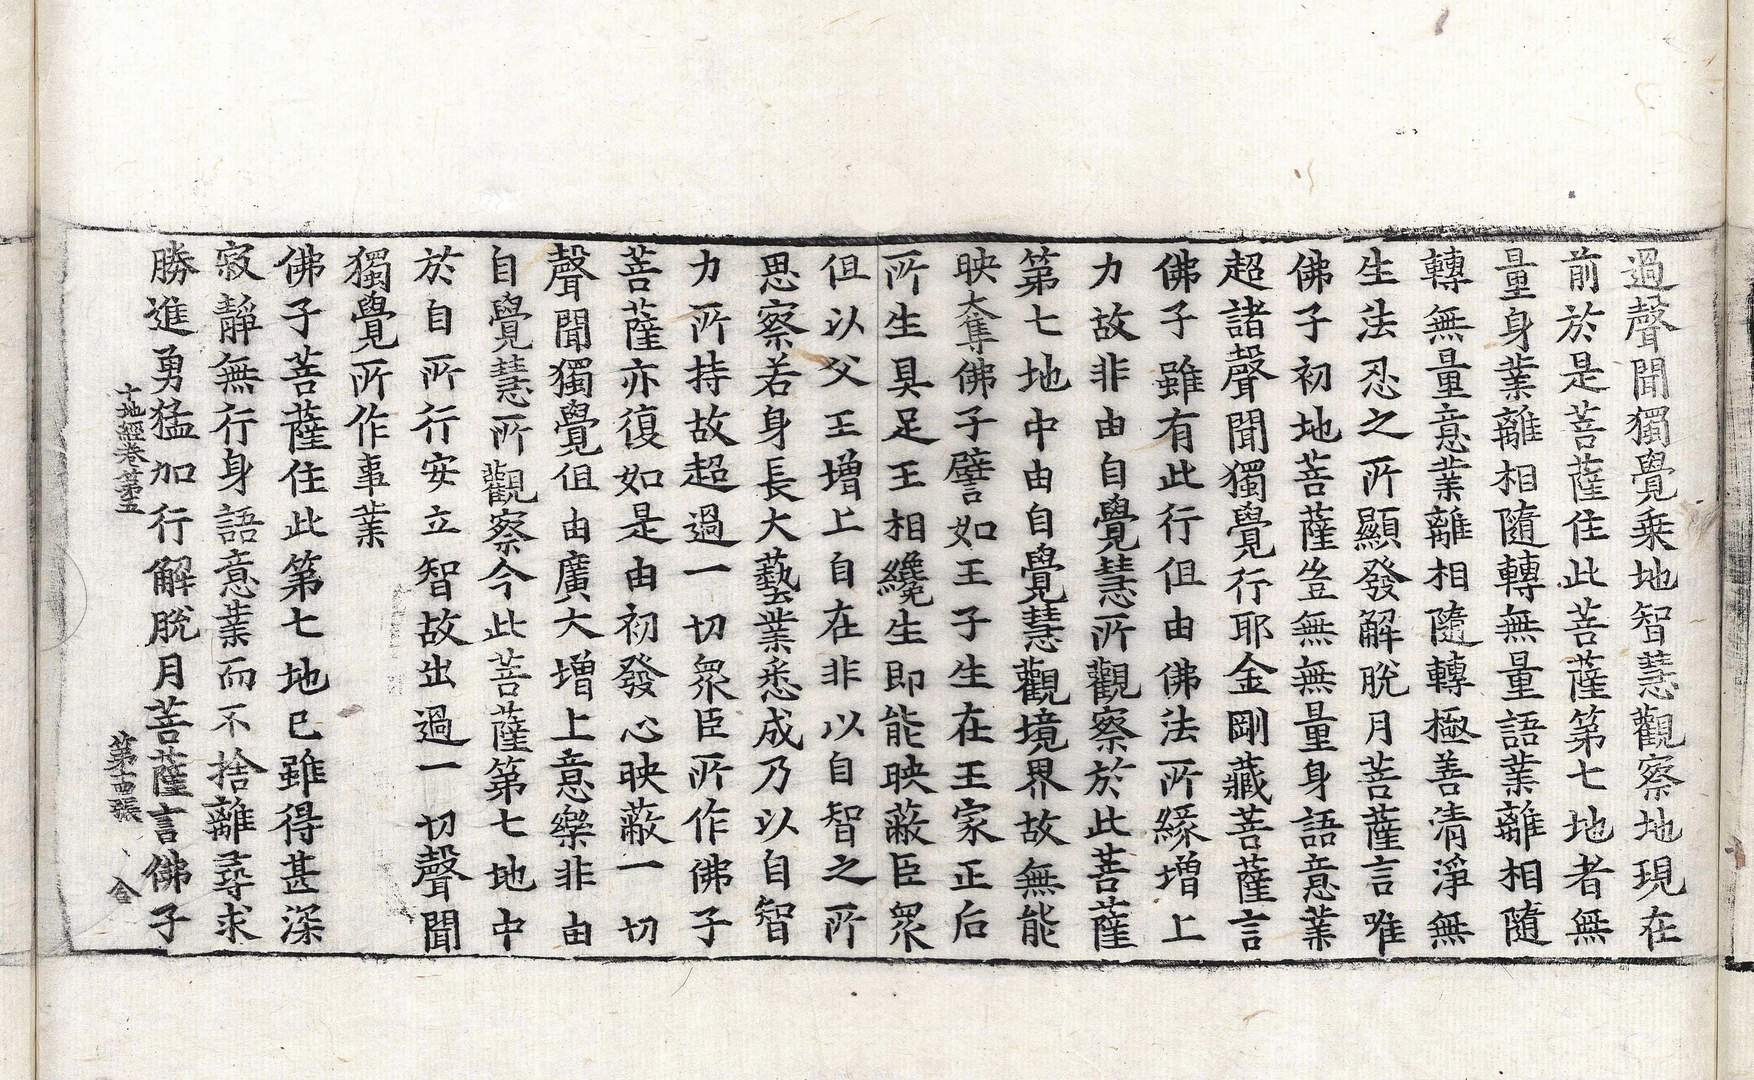 過聲聞獨覺乘地智慧觀察地現在
前於是菩薩住此菩薩第七地者無
量身業離相隨轉無量語業離相隨
轉無量意業離相隨轉極善清淨無
生法忍之所顯發解脫月菩薩言唯
佛子初地菩薩豈無無量身語意業
超諸聲聞獨覺行耶金剛藏菩薩言
佛子雖有此行但由佛法所緣增上
力故非由自覺慧所觀察於此菩薩
第七地中由自覺慧觀境界故無能
映大奪佛子譬如王子生在王家正后
所生具足王相纔生即能映蔽臣衆
但以父王增上自在非以自智之所
思察若身長大藝業悉成乃以自智
力所持故超過一切衆臣所作佛子
菩薩亦復如是由初發心映蔽一切
聲聞獨覺但由廣大增上意樂非由
自覺慧所觀察今此菩薩第七地中
於自所行安立智故出過一切聲聞
獨覺所作事業
佛子菩薩住此第七地已雖得甚深
寂靜無行身語意業而不捨離尋求
勝進勇猛加行解脫月菩薩言佛子
十地經卷第五 第十四張 合